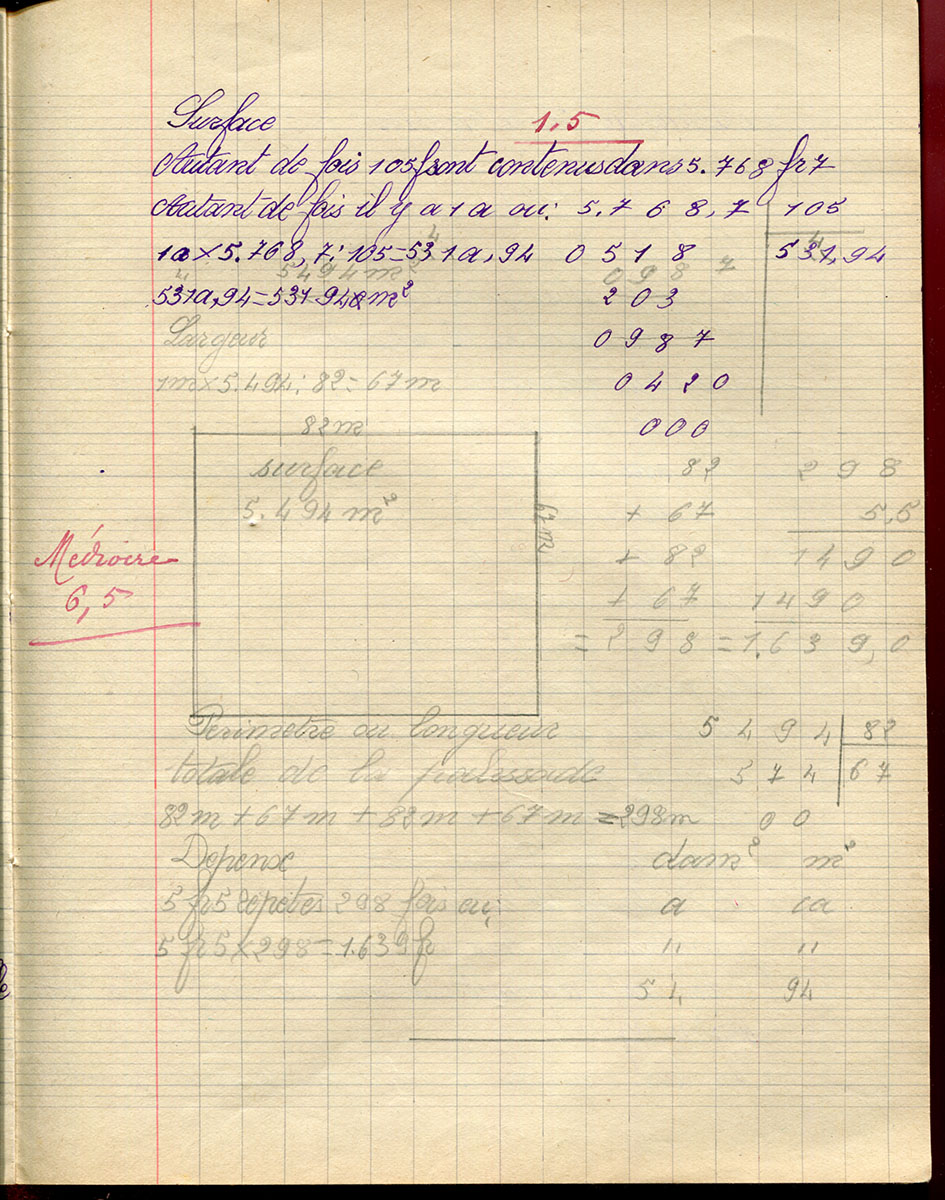 Surface
1,5
Autant de fois 105f sont contenus dans 5.768 fr 7
Autant de fois il y a 1 a ou: 5.768,7 | 105
1a × 5.768,7 : 105 = 531a,94
0518
531,94
4
4
5494 m²
0987
531a,94 = 53194 m²
203
0987
Largeur
1m × 5.494 : 82 = 67 m
0420
000
82m
surface
5.494 m²
67 m
82
+ 67
+ 82
+ 67
= 298
298
5,5
1490
1490
= 1.639,0
Médiocre
6,5
Périmètre ou longueur
totale de la palissade
82m + 67m + 82m + 67m = 298m
5494 | 82
574 | 67
00
Dépense
5 fr 5 répétés 298 fois ou;
5 fr 5 × 298 = 1.639 fr
dam² m²
a ca
" "
54, 94